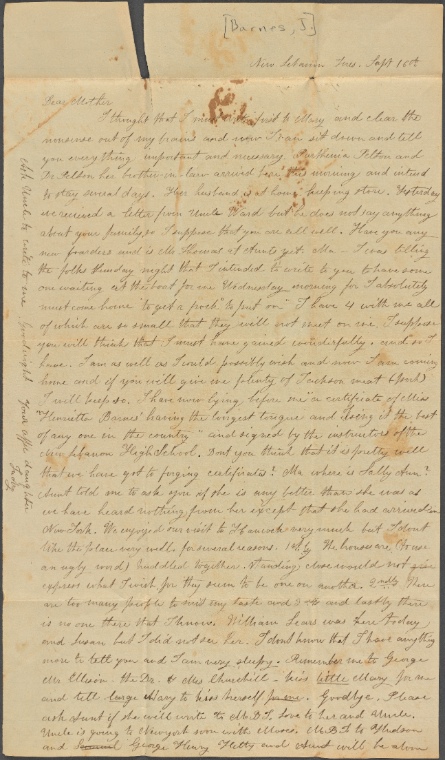 [Barnes, J]
New Lebanon Tues. Sept 10th
Dear Mother
I thought that I would first to Mary and clear the
nonsense out of my brains and now I can sit down and tell
you everything important and necessary. Parthenia Tilton and
Dr Tilden her brother in law arrived here this morning and intend
to stay several days. Her husband is at home keeping store. Yesterday
we received a letter from Uncle Ward but he does not say anything
about your family so I suppose that you are all well. Have you any
new boarders and is Mr Thomas at Aunts yet. Ma I was telling
the folks Sunday night that I intended to write to you to have some
one waiting at the boat for me Wednesday morning for I absolutely
must come home "to get a frock" to put on." I have 4 with me all
of which are so small that they will not meet on me. I suppose
you will think that I must have gained wonderfully and so I
have. I am as well as I could possibly wish and now I am coming
home and if you will give me plenty of Jackson meat (Pork)
I will keep so. I have now lying before me a certificate of Miss
"Henrietta Barnes' having the longest tongue and using it the best
of any one in the country" and signed by the instructors of the
New Lebanon High School. Dont you think that it is pretty well
that we have got to forging certificates? Ma where is Sally Ann?
Aunt told me to ask you if she is any better than she was as
we have heard nothing from her except that she had arrived in
New York. We enjoyed our visit to Hancock very much but I dont
like the place very well for several reasons. 1stly The houses are (O use
an ugly word) huddled together. Standing close would not
express what I wish for they seem to be one on another. 2ndly There
are too many people to suit my taste and 3rd and lastly there
is no one there that I know. William Sears was here today
and Susan but I did not see her. I dont know that I have anything
more to tell you and I am very sleepy. Remember me to George
Mr Ellison the Dr. & Mrs Churchill. kiss little Mary for me
and tell large Mary to kiss herself for me. Goodbye. Please
ask Aunt if she will write to M.D.T. Love to her and Uncle.
Uncle is going to New York soon with Moses. M.D.T. to Hudson
and George Henry Hetty and Aunt will be alone
Ask Uncle to write to me Goodnight Your aff. daughter